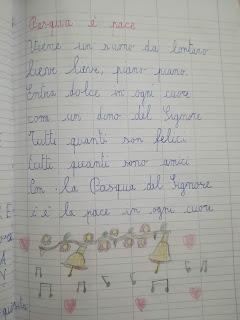 Pasqua è pace
Viene un suono da lontano
lieve lieve, piano piano.
Entra dolce in ogni cuore
com un dono del Signore
Tutti quanti son felici
tutti quanti sono amici
Con la Pasqua del Signore
c'è la pace in ogni cuore